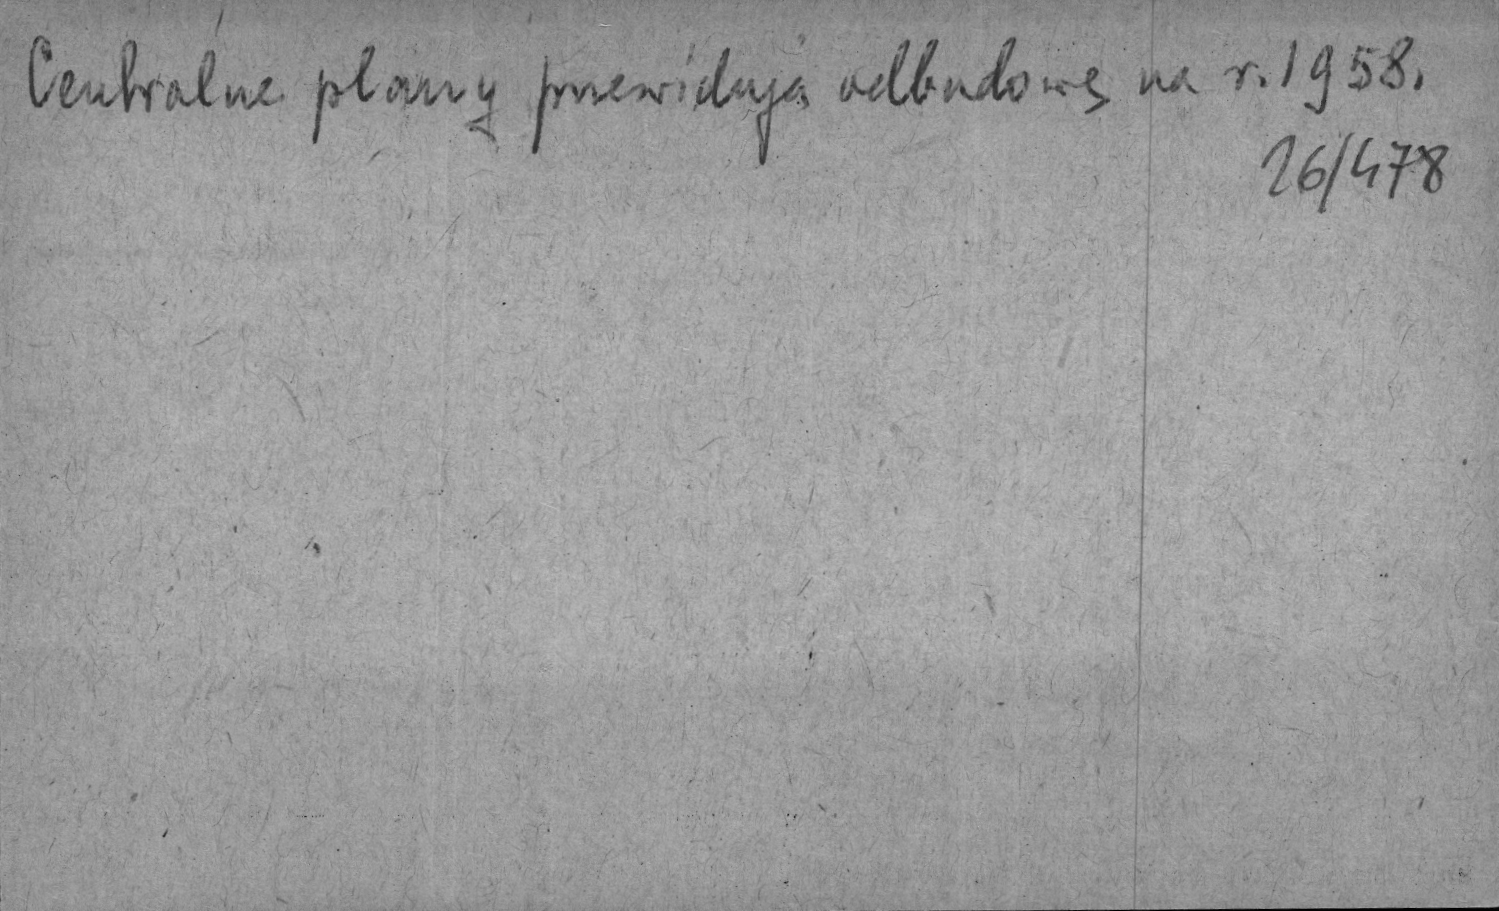 Centralne plany przewidują odbudowę na r. 1958.
26/478